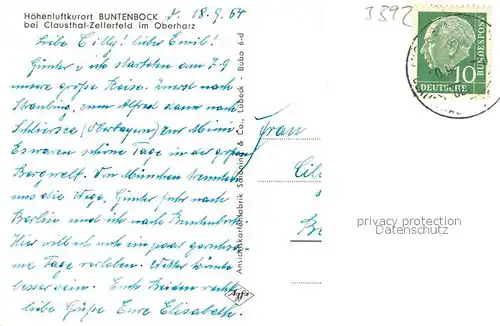 Höhenluftkurort BUNTENBOCK
bei Clausthal-Zellerfeld im Oberharz
18.9.54
Liebe Cilly! lieber Emil!
Günter u ich starteten am 7.9
unsere große Reise. Zuerst nach
Straubing, zum Alfred dann nach
Schliersee (Oberbayern) zur Mimi.
Es waren schöne Tage in der großen
Bergwelt. In München trennten
uns die Wege, Günter fuhr nach
Berlin und ich nach Buntenbock.
Hier will ich noch ein paar geruhsame
Tage verleben. Wetter könnte
besser sein. Euch Beiden recht
liebe Grüße Eure Elisabeth.
Ansichtskartenfabrik Schöning & Co., Lübeck · Bubo 6-d
Frau
3392
10
DEUTSCHE
BUNDESPOST
privacy protection
Datenschutz